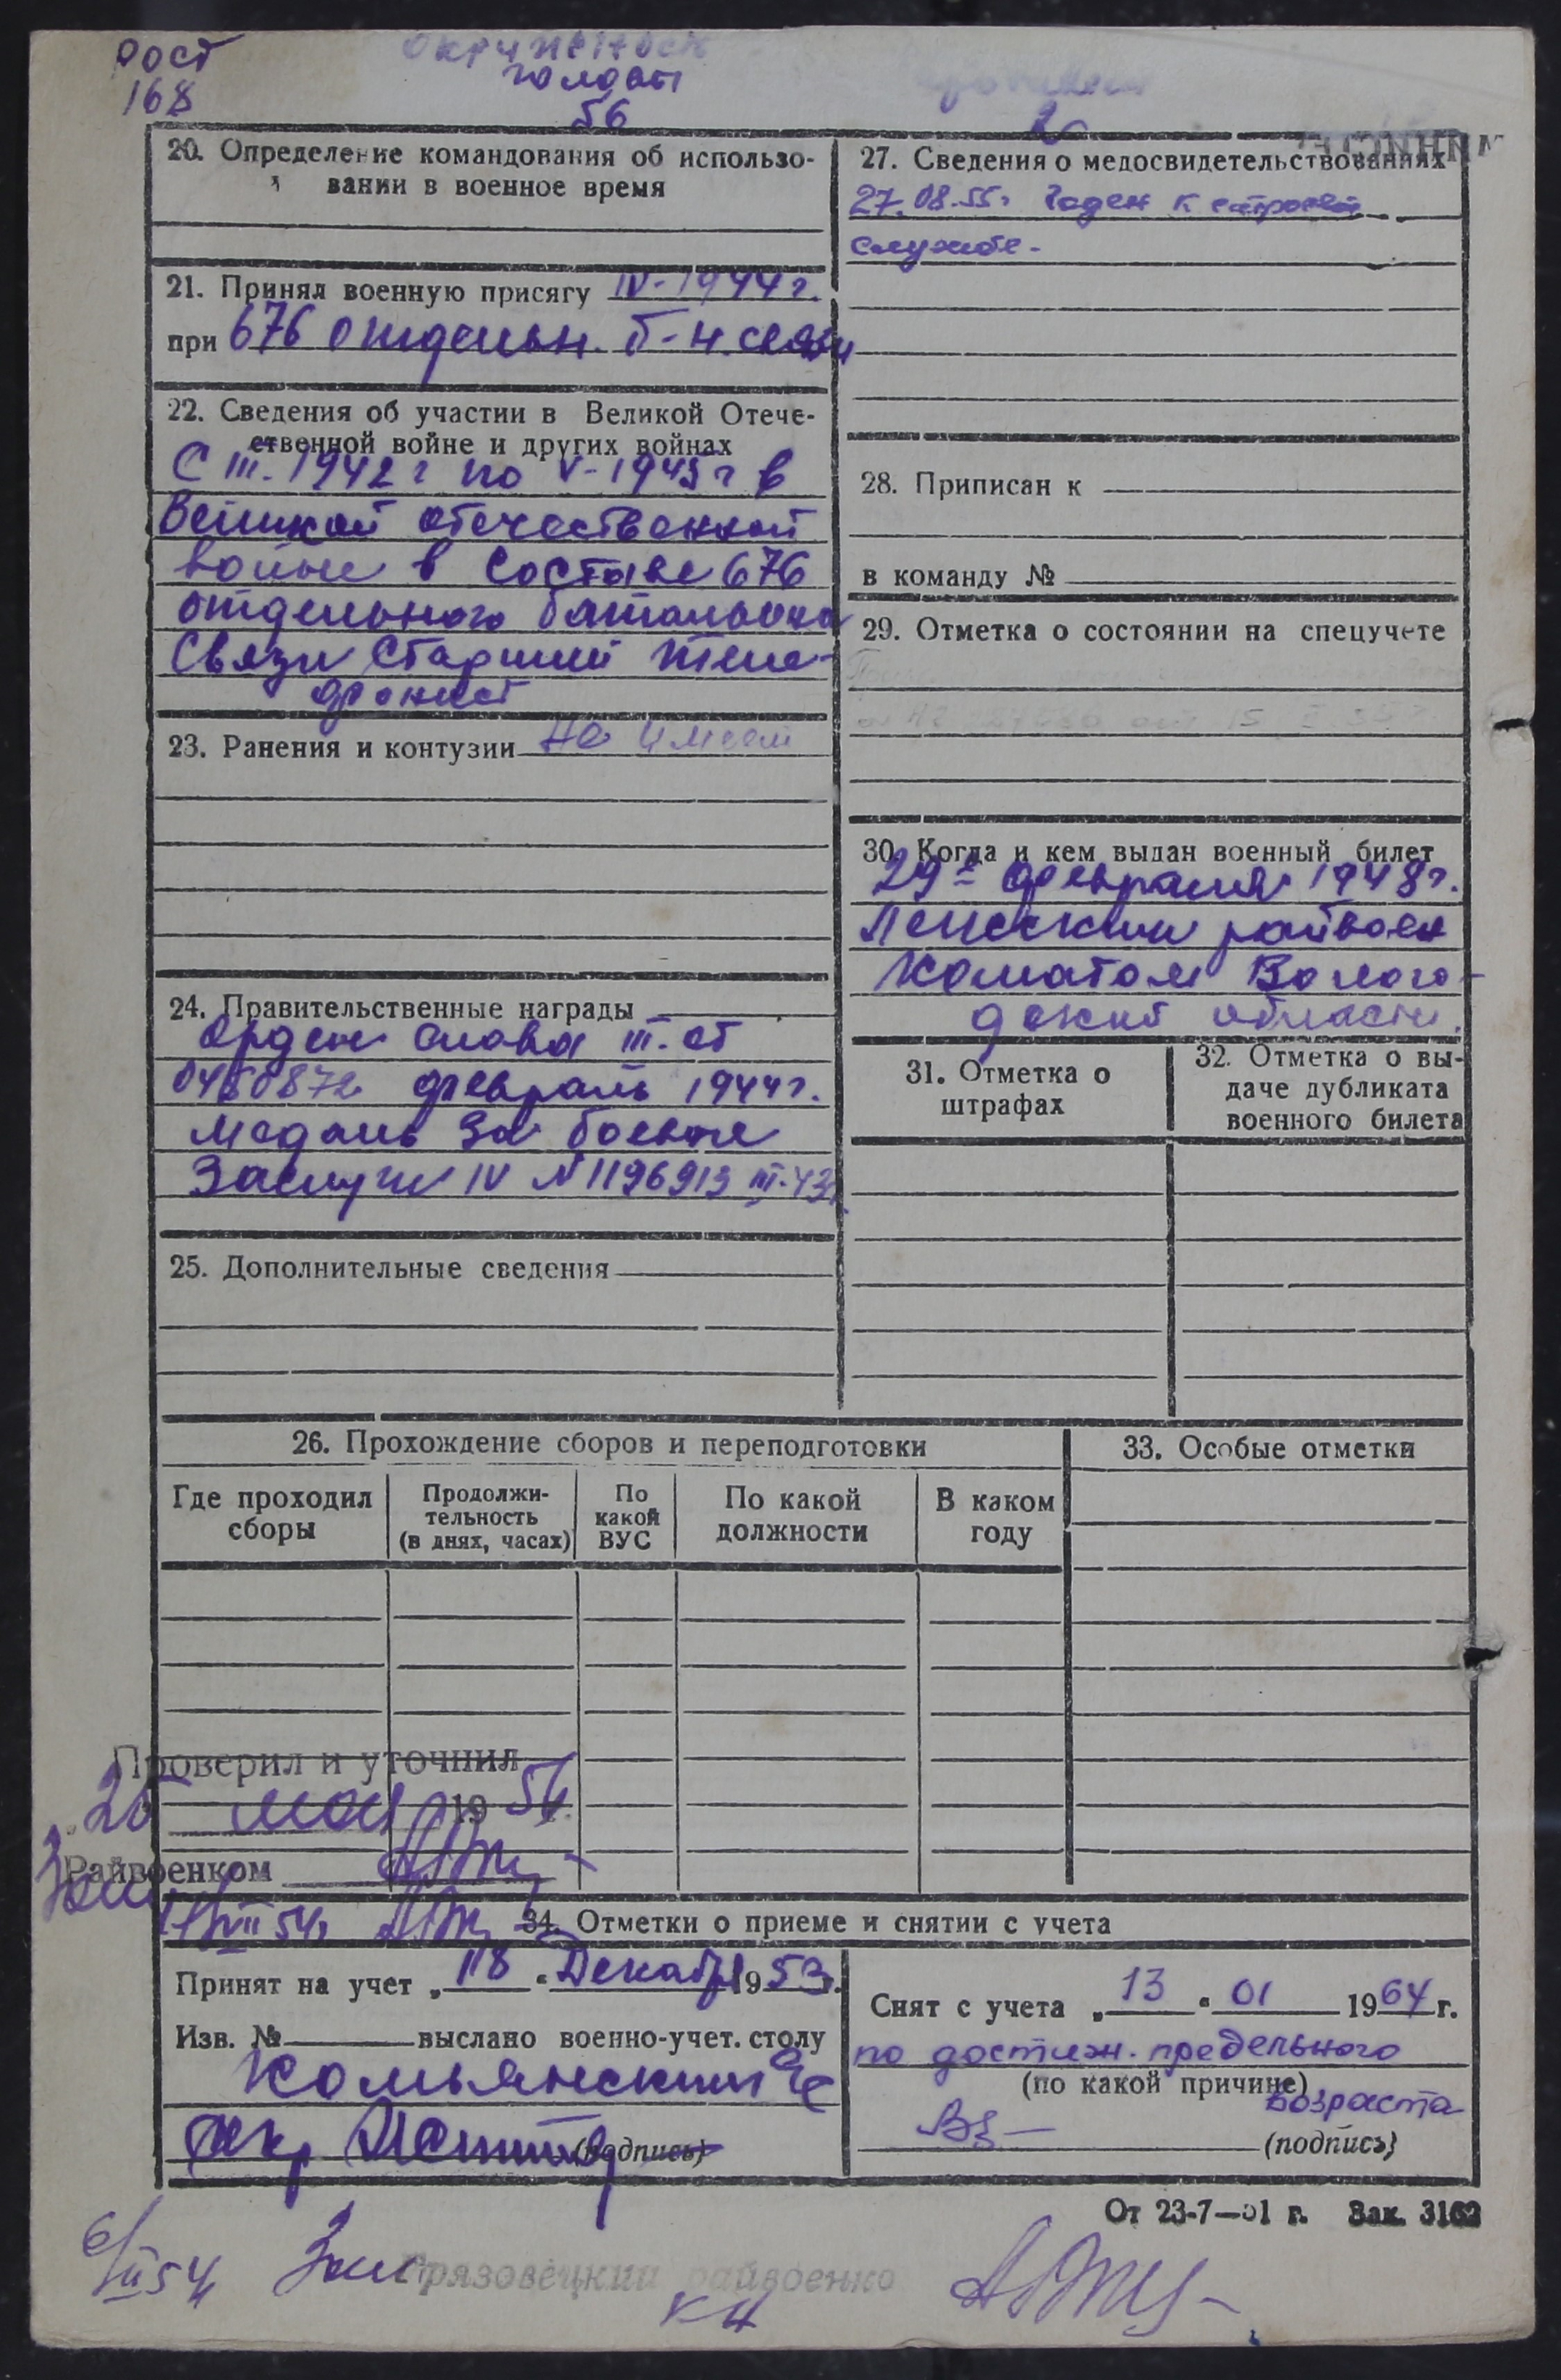 Рост
168
окружность
головы
56
20. Определение командования об использо-
вании в военное время
21. Принял военную присягу IV-1944 г.
при 676 отдельн. б-н. связи
22. Сведения об участии в Великой Отече-
ственной войне и других войнах
С III. 1942 г по V-1945 г в
Великой отечественной
войне в составе 676
отдельного батальона
Связи Старший теле-
фонист
23. Ранения и контузии не имеет
24. Правительственные награды
орден слава III. ст
февраль 1944 г.
Медаль За боевые
Заслуги IV N 1196913 III-43г.
25. Дополнительные сведения
27. Сведения о медосвидетельствованиях
27.08.55г Годен к строевой
службе.
28. Приписан к
в команду №
29. Отметка о состоянии на спецучете
30. Когда и кем выдан военный билет
29 февраля 1948 г.
райвоен
коматом Волого-
дской области.
31. Отметка о
штрафах
32. Отметка о вы-
даче дубликата
военного билета
26. Прохождение сборов и переподготовки
Где проходил
сборы
Продолжи-
тельность
(в днях, часах)
По
какой
ВУС
По какой
должности
В каком
году
33. Особые отметки
Проверил и уточнил
мая 19 54
Райвоенком
34. Отметки о приеме и снятии с учета
Принят на учет „18“ Декабря 1953 г.
Изв. № выслано военно-учет. столу
Комьянский
(подпись)
Снят с учета „13“ 01 1964 г.
по достижн. предельного
(по какой причине)
возраста
(подпись)
Зак. 3162
Грязовецкий райвоенко